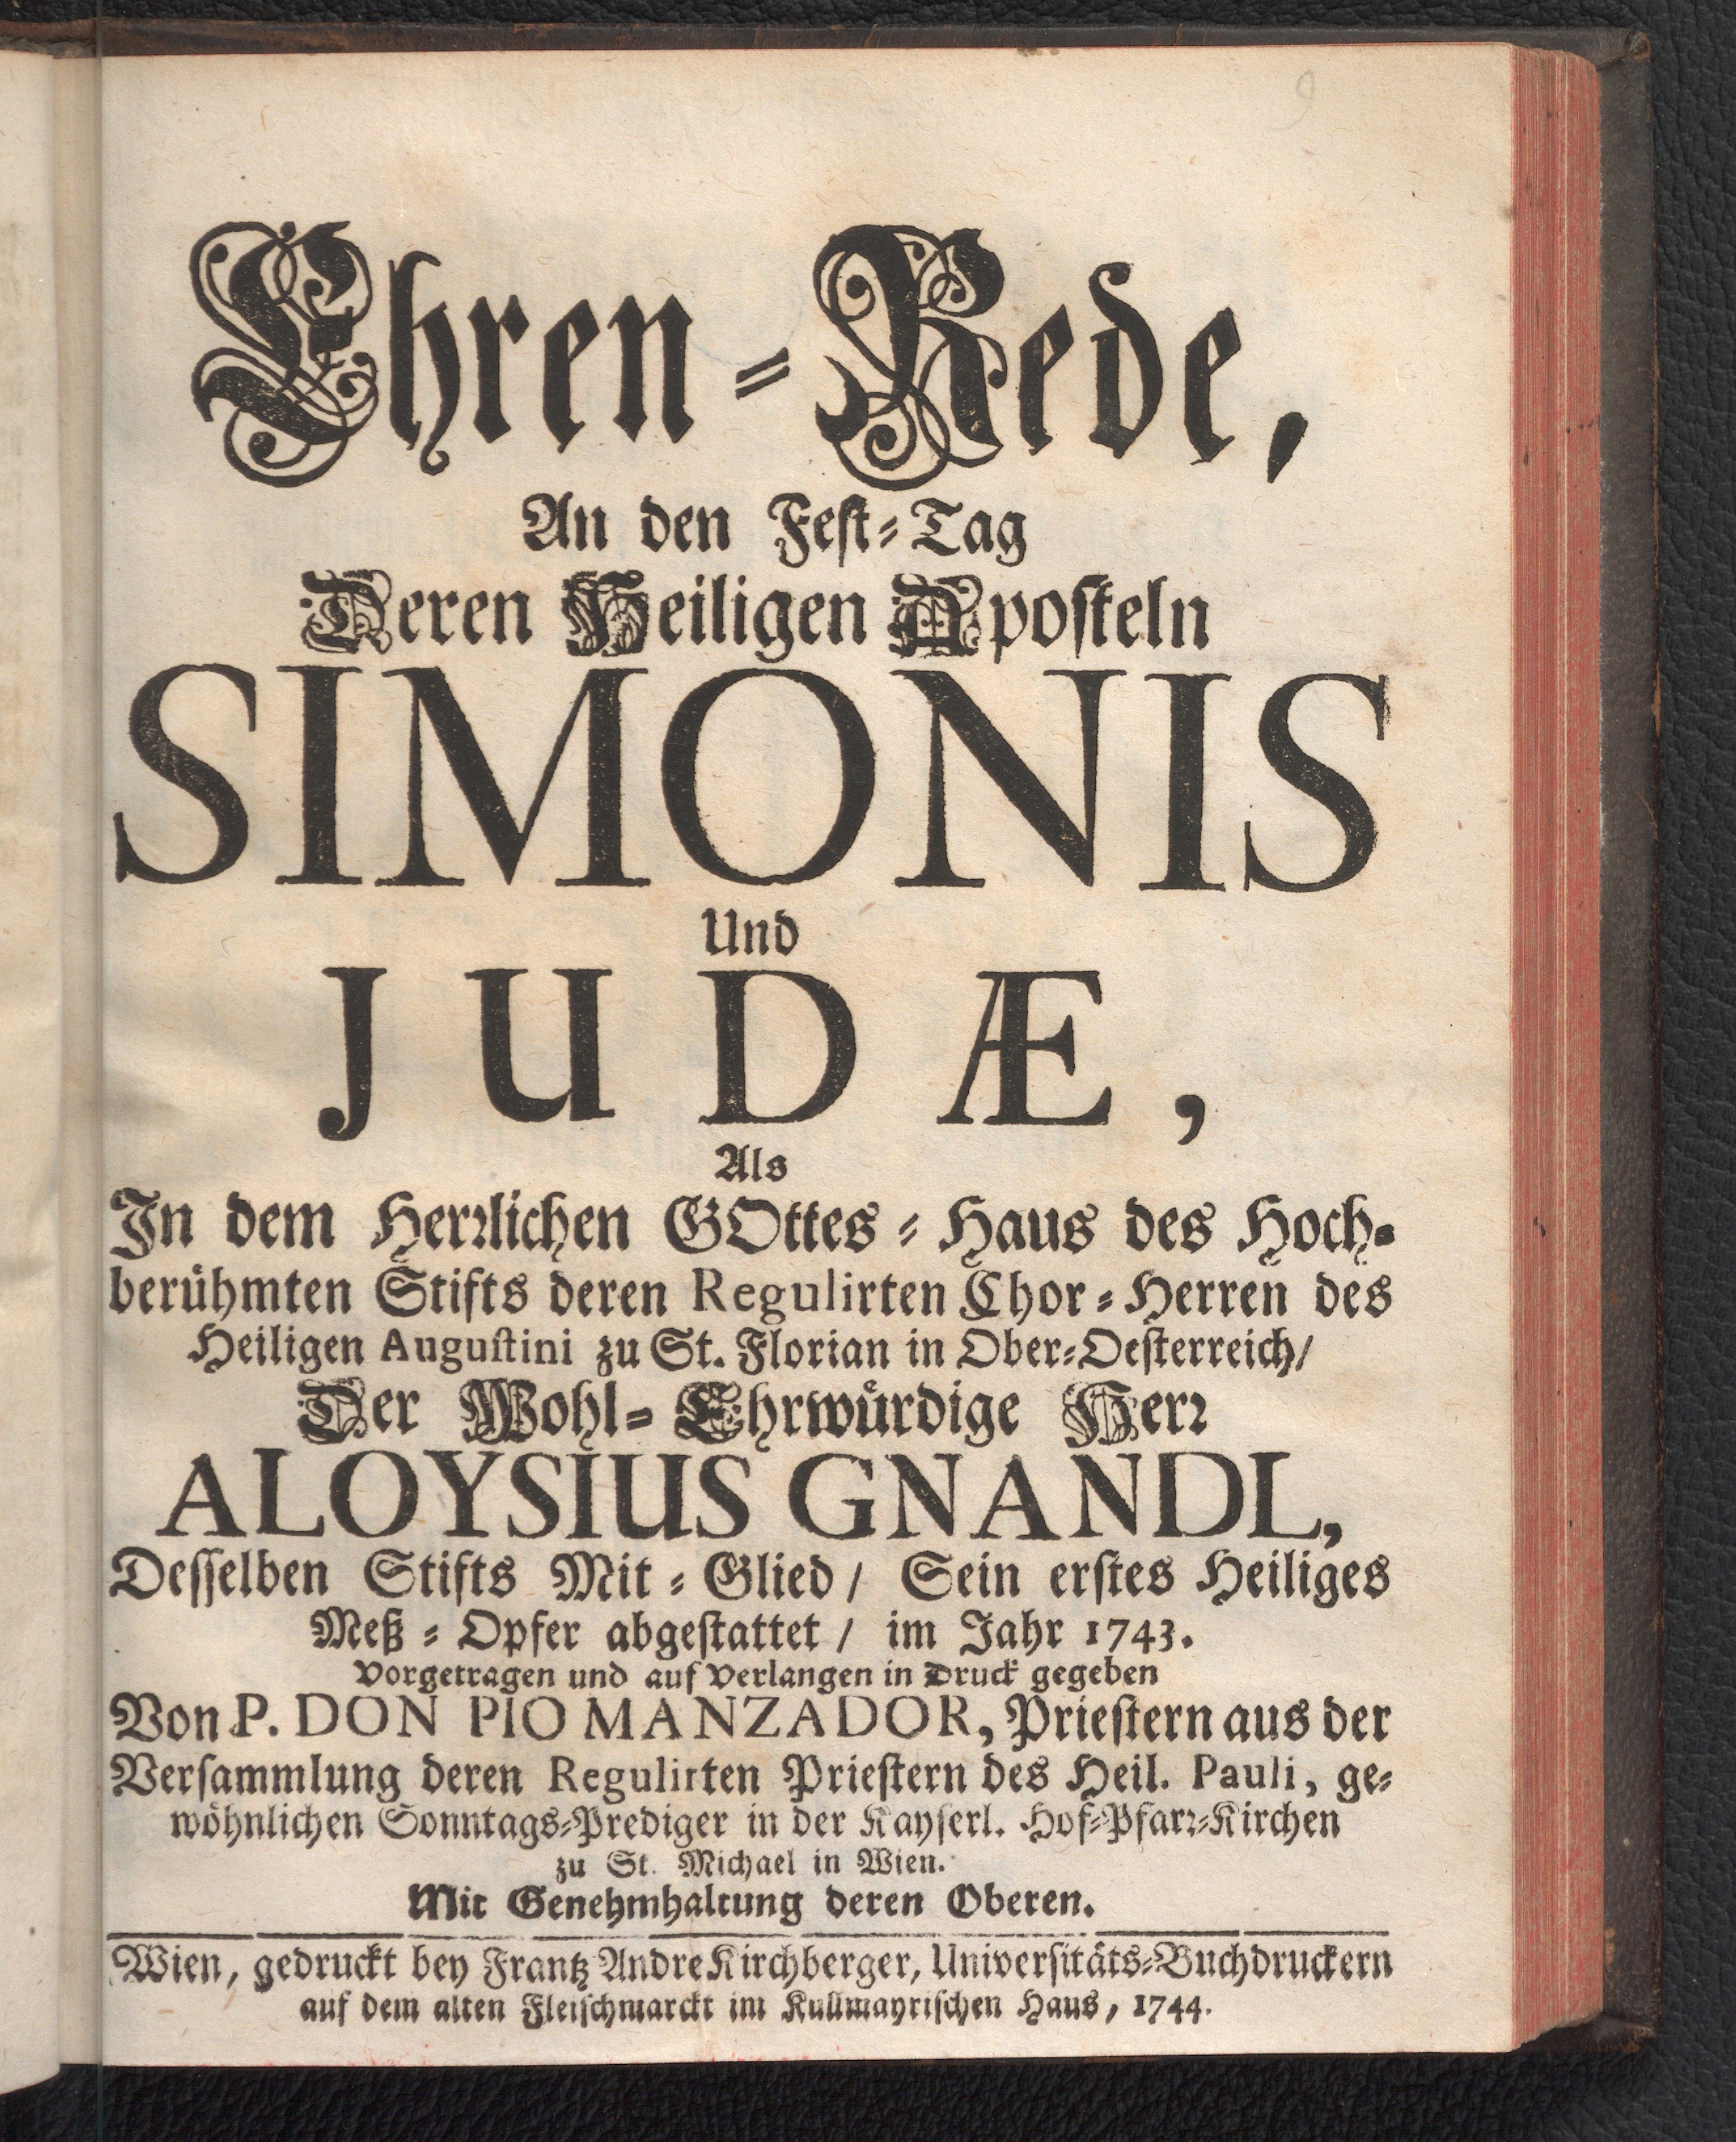 9
Ehren-Rede,
An den Fest-Tag
Deren Heiligen Aposteln
SIMONIS
Und
JUDÆ,
Als
In dem Herꝛlichen GOttes-Haus des Hoch-
berühmten Stifts deren Regulirten Chor-Herren des
Heiligen Augustini zu St. Florian in Ober-Oesterreich/
Der Wohl-Ehrwürdige Herꝛ
ALOYSIUS GNANDL,
Desselben Stifts Mit-Glied/ Sein erstes Heiliges
Meß-Opfer abgestattet/ im Jahr 1743.
Vorgetragen und auf Verlangen in Druck gegeben
Von P. DON PIO MANZADOR, Priestern aus der
Versammlung deren Regulirten Priestern des Heil. Pauli, ge-
wöhnlichen Sonntags-Prediger in der Kayserl. Hof-Pfarꝛ-Kirchen
zu St. Michael in Wien.
Mit Genehmhaltung deren Oberen.
Wien, gedruckt bey Frantz Andre Kirchberger, Universitäts-Buchdruckern
auf dem alten Fleischmarckt im Kullmayrischen Haus, 1744.